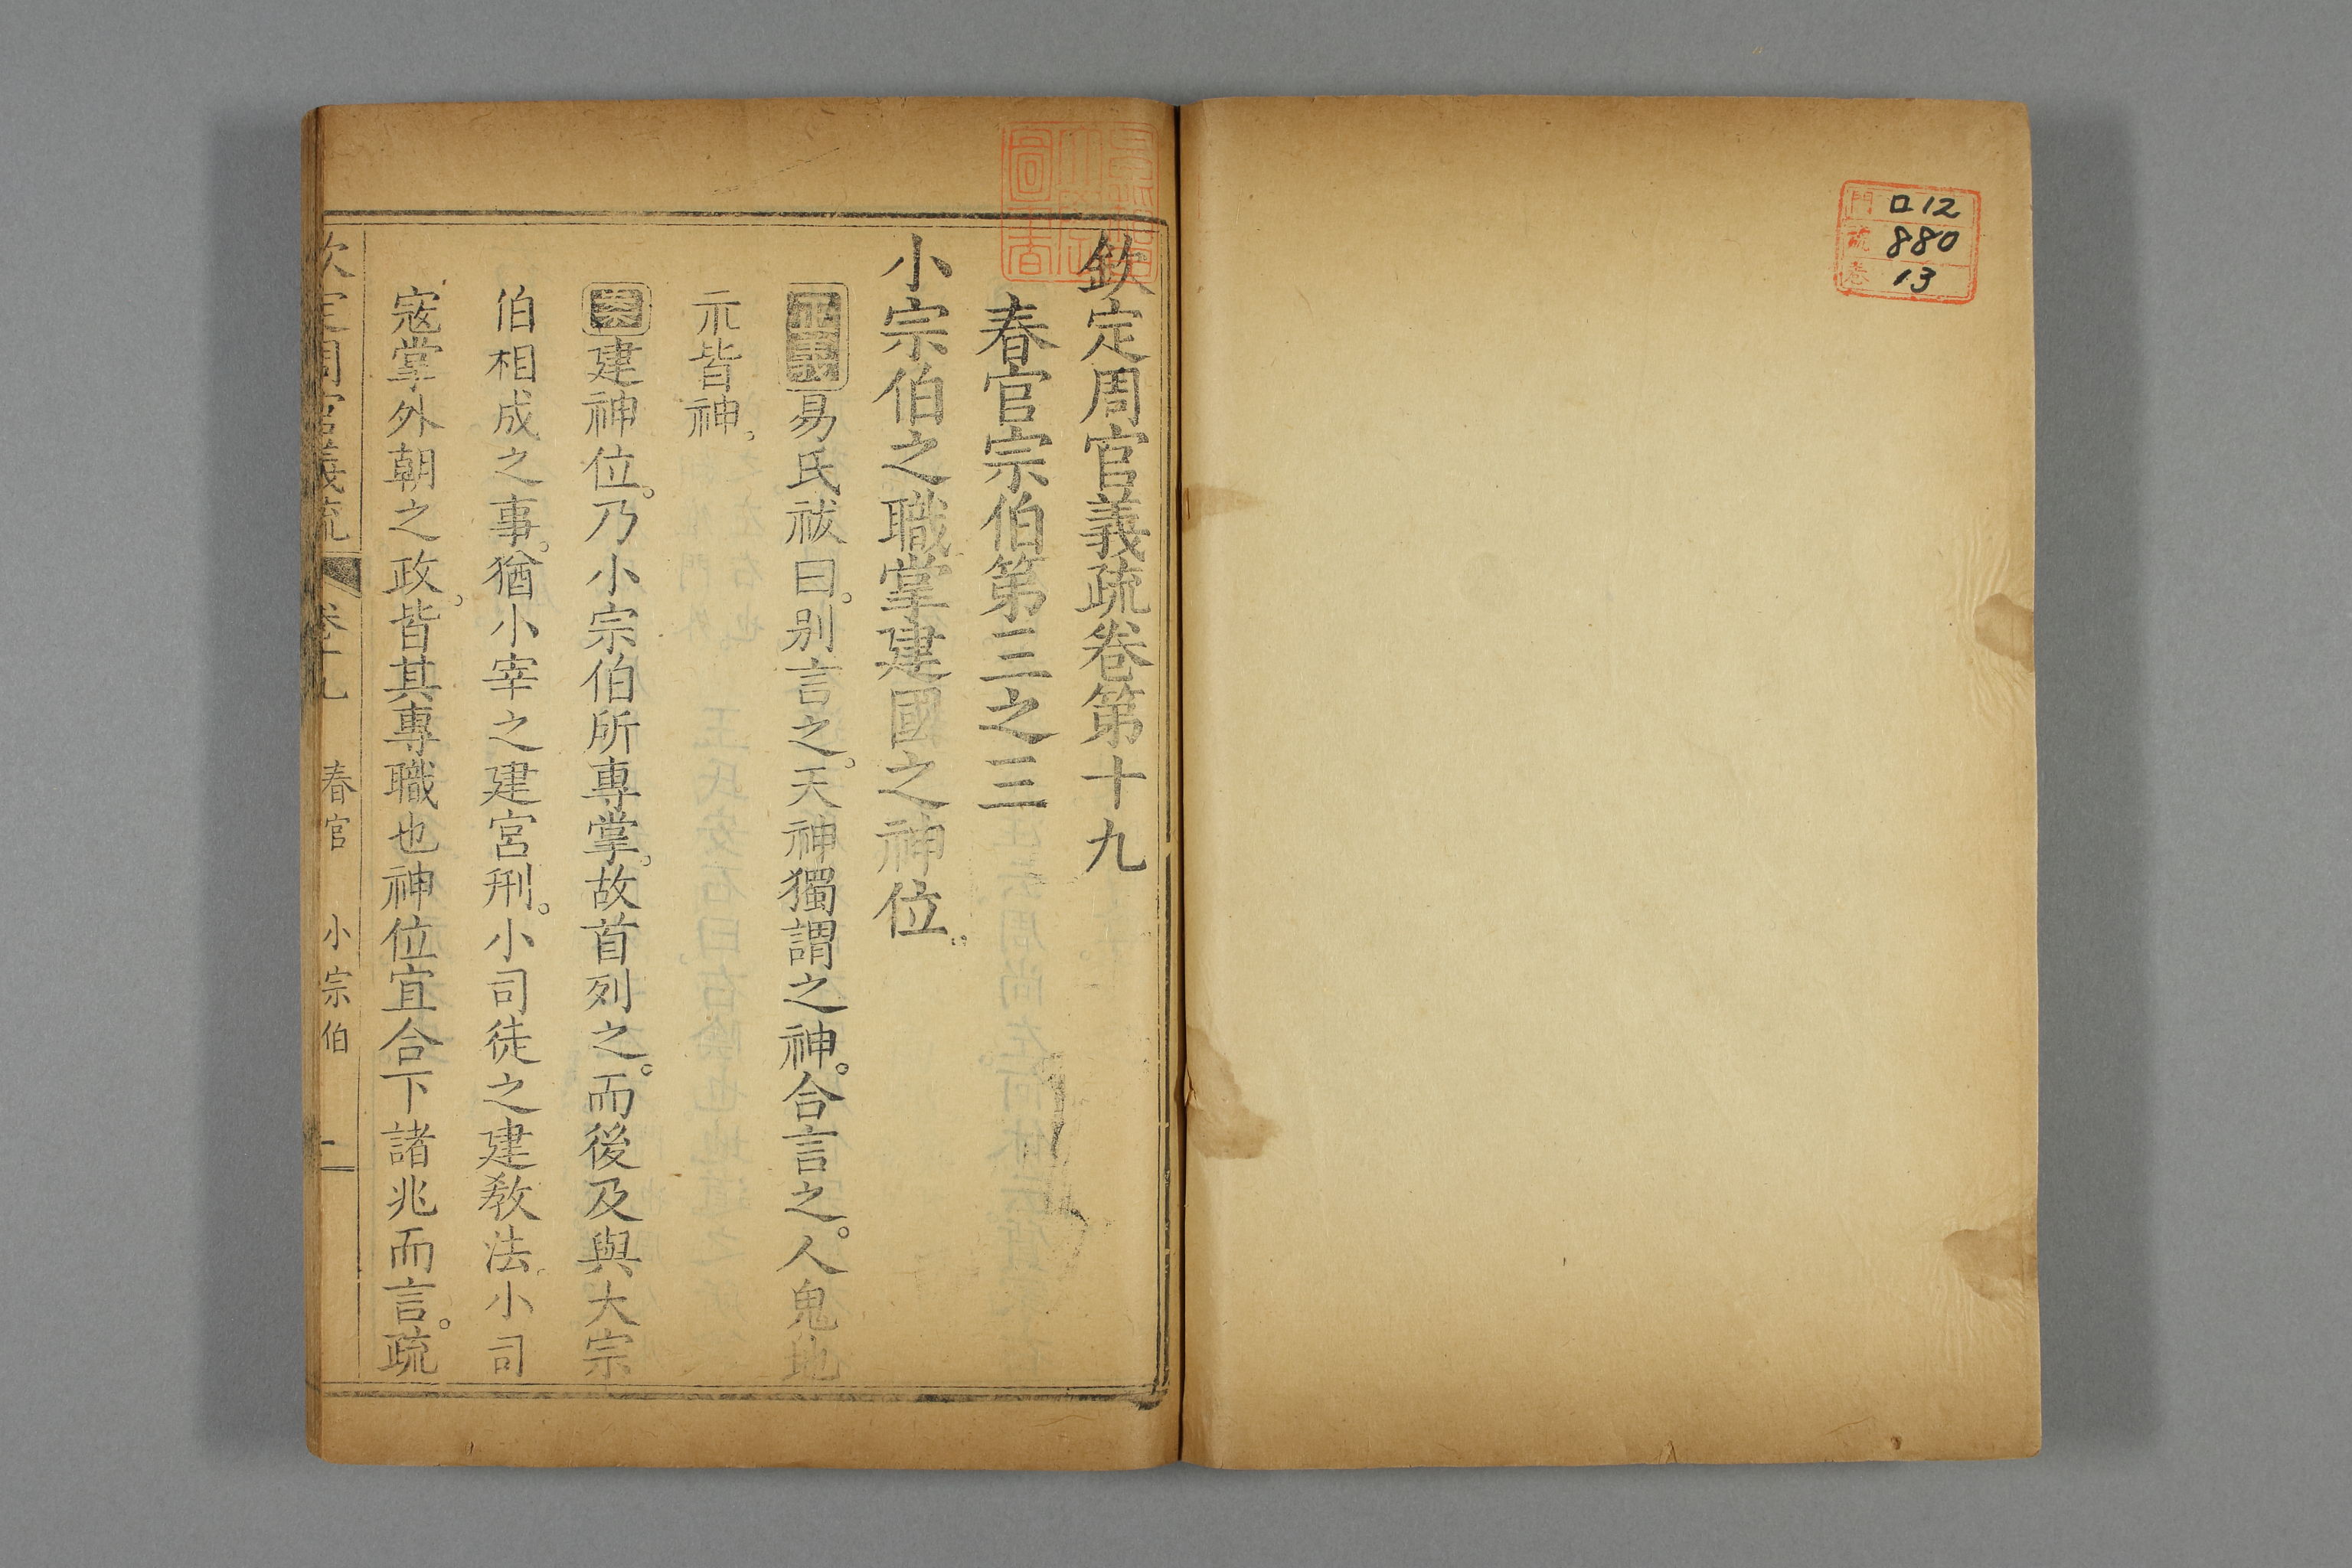 門 ロ12
號 880
卷 13
欽定周官義疏卷第十九
春官宗伯第三之三
小宗伯之職掌建國之神位
正義易氏祓曰。别言之。天神獨謂之神。合言之。人鬼地
示皆神。
案建神位。乃小宗伯所專掌。故首列之。而後及與大宗
伯相成之事。猶小宰之建宮刑。小司徒之建敎法小司
寇掌外朝之政。皆其專職也神位宜合下諸兆而言。疏
欽定周官義疏 卷十九 春官 小宗伯 一